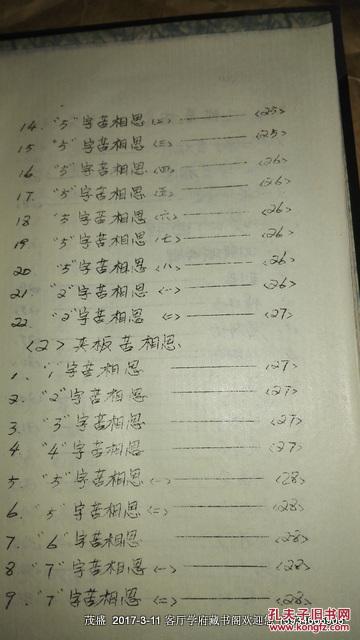 14. "5"字苦相思<二> ———— <25>
15 "5"字苦相思<三> ———— <25>
16 "5"字苦相思<四> ———— <26>
17. "5"字苦相思<五> ———— <26>
18 "5字苦相思<六> ———— <26>
19 "5"字苦相思<七> ———— <26>
20 "5"字苦相思<八> ———— <26>
21 "2"字苦相思<一> ———— <26>
22. "2"字苦相思<二> ———— <27>
<2>夹板苦相思
1. "1"字苦相思 ———— <27>
2. "2"字苦相思 ———— <27>
3. "3"字苦相思 ———— <27>
4. "4"字苦相思 ———— <27>
5. "5"字苦相思<一> ———— <28>
6 "5"字苦相思<二> ———— <28>
7. "6"字苦相思 ———— <28>
8 "7"字苦相思<一> ———— <28>
9. "7"字苦相思<二> ———— <28>
茂盛 2017-3-11 客厅学府藏书阁欢迎您
孔夫子旧书网
www.kongfz.com